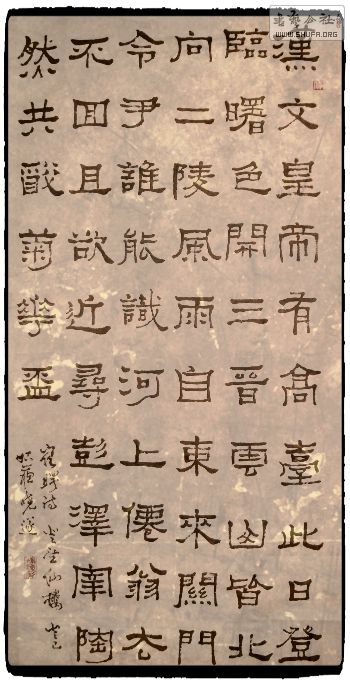 漢文皇帝有髙臺此日登
臨曙色開三晉雲山皆北
向二陵風雨自東來關門
令尹誰能識河上僊翁去
不回且欲近尋彭澤宰陶
然共醉菊華盃
崔曙詩 登望仙楼
書藝公社
WWW.SHUFA.ORG